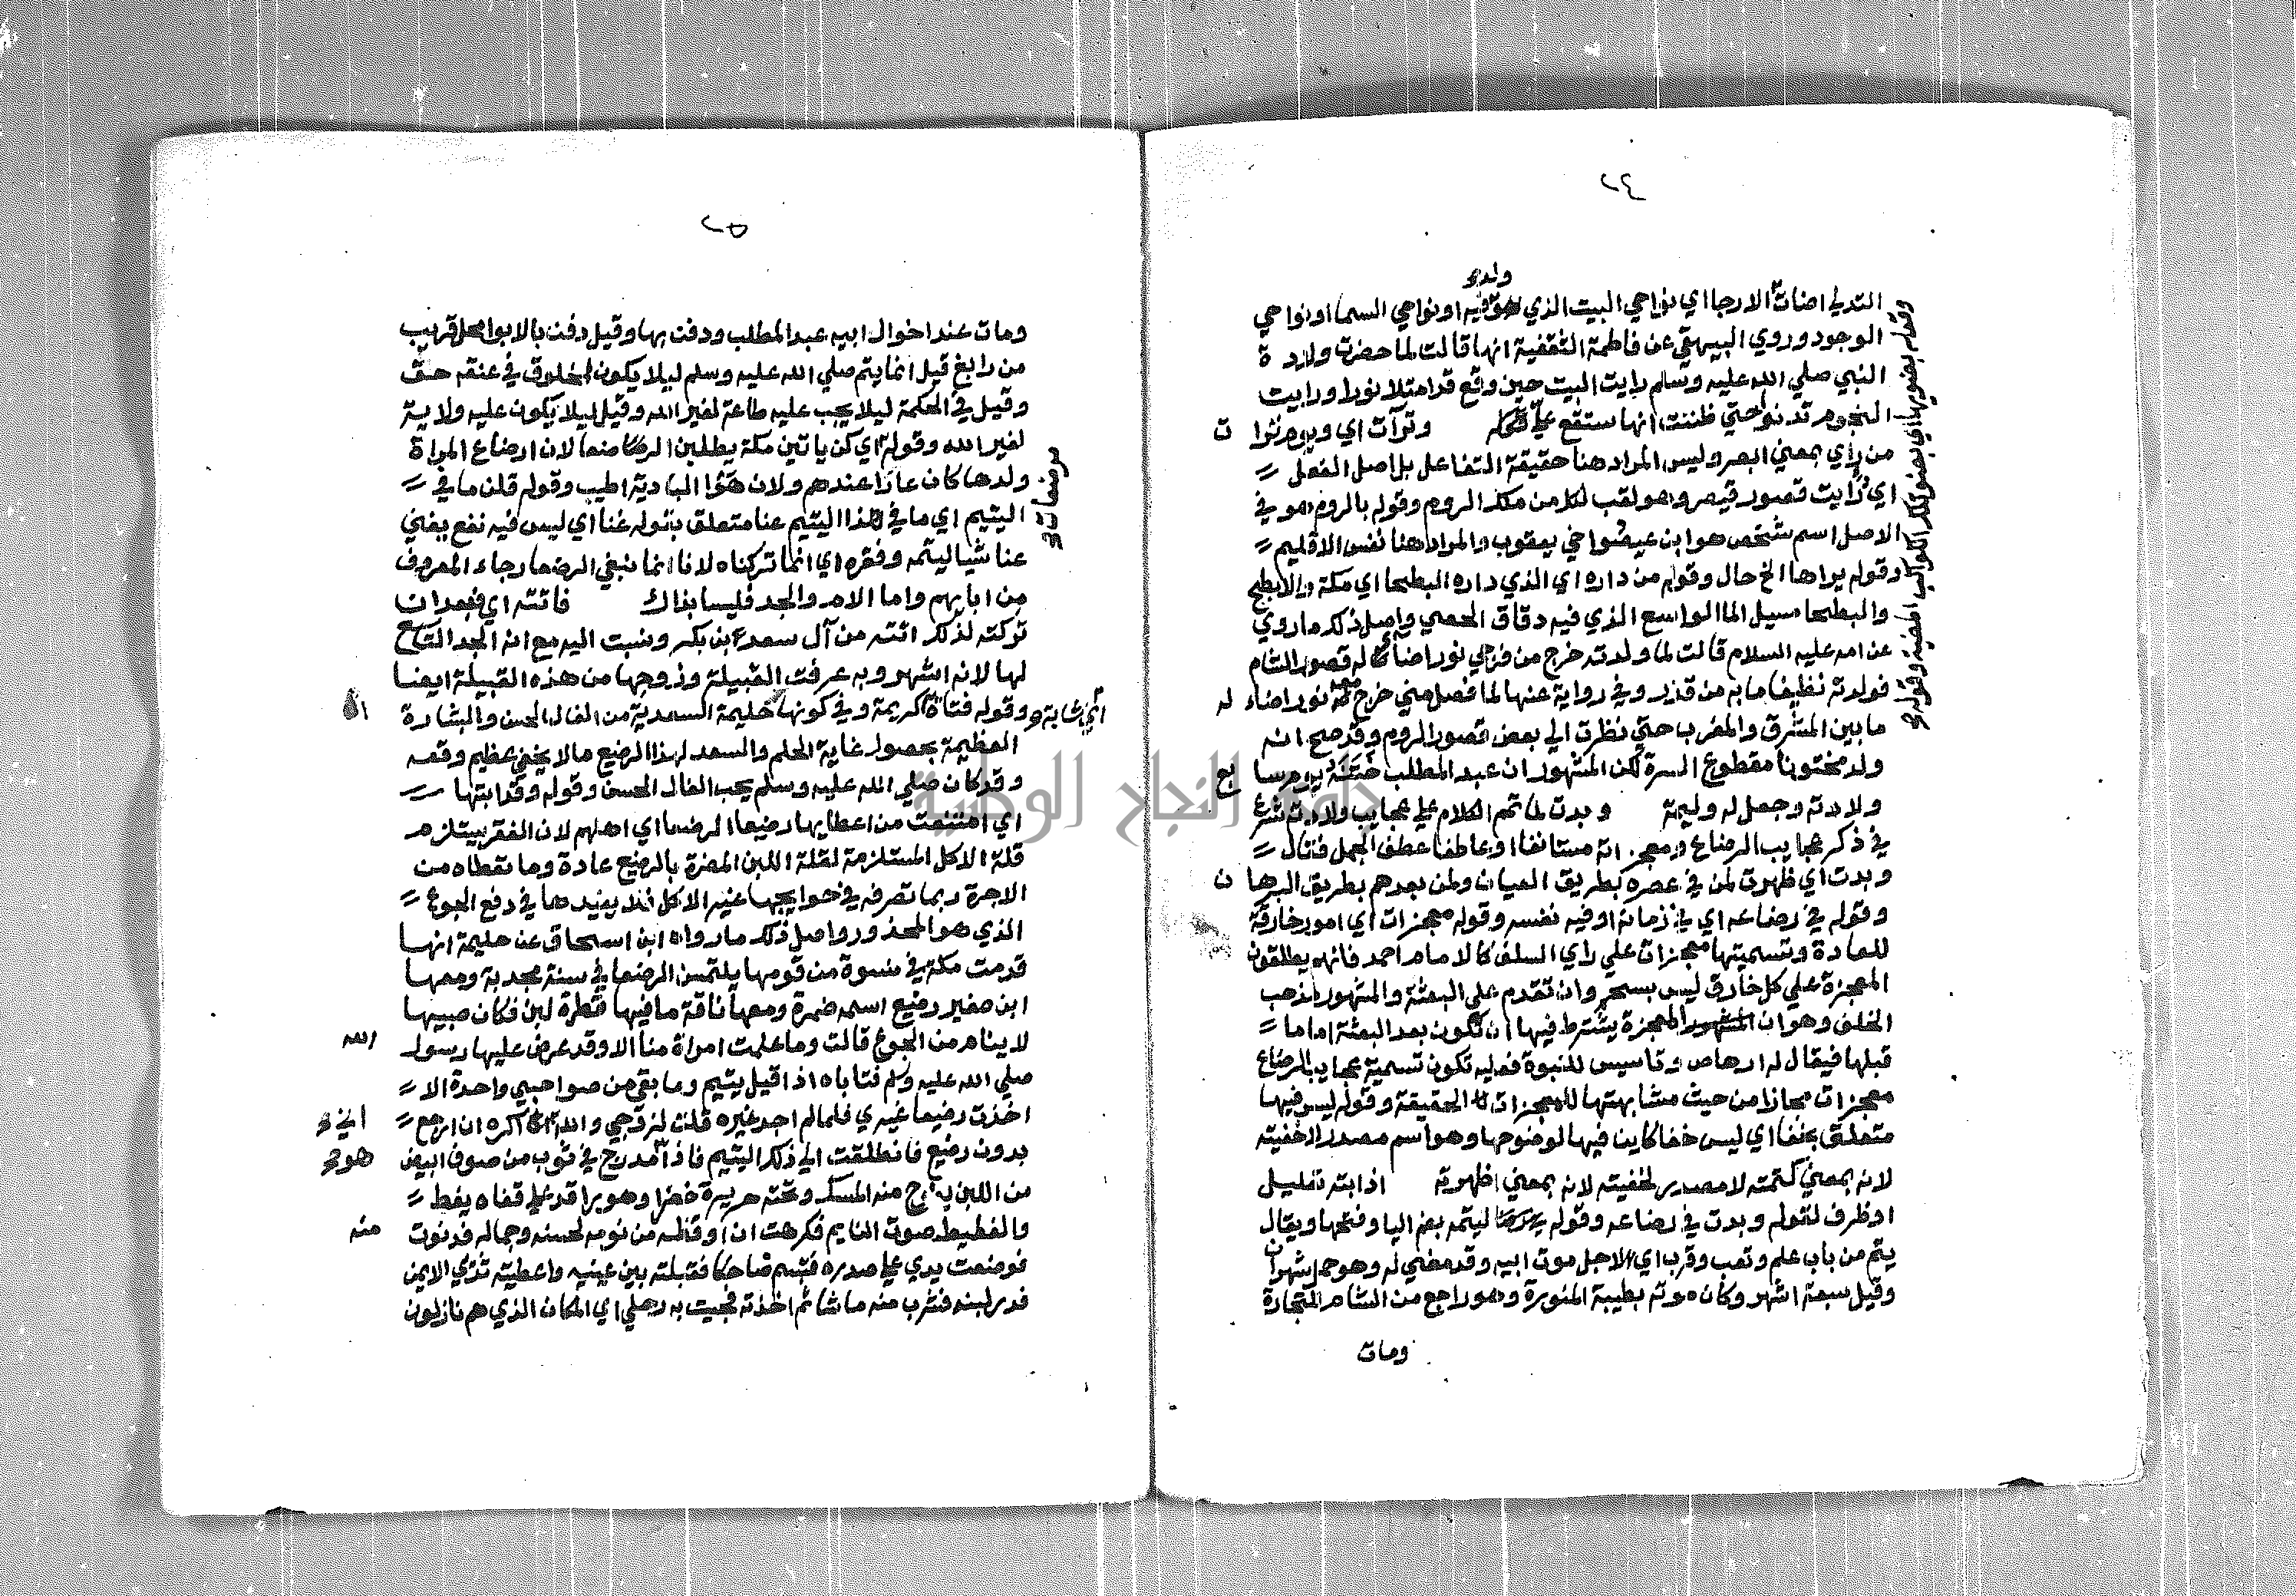 ٢٤
ولد
التدلي اضات الارجا اي نواحي البيت الذي هو فيه او نواحي السما او نواحي
الوجود وروي البيهقي عن فاطمة الثقفية انها قالت لما حضرت ولادة
النبي صلي الله عليه وسلم رايت البيت حين وقع قد امتلا نورا ورايت
النجوم تدنوا حتي ظننت انها ستقع علي وترآت اي وبوزنوا ت
من رأي بمعني ابصر وليس المراد هنا حقيقة التفاعل بل اصل الفعل
اي رأيت قصور قيصر وهو لقب لكل من ملك الروم وقوله بالروم هو في
الاصل اسم شخص هو ابن عيصوا خي يعقوب والمراد هنا نفس الاقليم
وقوله يراها الخ حال وقوله من داره اي الذي داره البطحا اي مكة والابطح
والبطحا مسيل الما الواسع الذي فيه دقاق الحصي واصل ذلك ما روي
عن امه عليه السلام قالت لما ولدته خرج من فرجي نور اضاء له قصور الشام
فولدته نظيفا ما به من قذر وفي رواية عنها لما فصل مني خرج معه نور اضاء له
ما بين المشرق والمغرب حتي نظرت الي بعض قصور الروم وقد صح انه
ولد مختونا مقطوع السرة لكن المشهور ان عبد المطلب خَتَنَهُ يوم سابع
ولادته وجعل له وليمة وبدت لما تمم الكلام علي عجايب ولادته شرع
في ذكر عجايب الرضاع ومعجزاته مستانفا او عاطفا عطف الجمل فقال
وبدت اي ظهرت لمن في عصره بطريق العيان ولمن بعدهم بطريق البرهان
وقوله في رضاعه اي في زمانه او فيه نفسه وقوله معجزات اي امور خارقة
للعادة وتسميتها معجزات علي راي السلف كالامام احمد فانهم يطلقون
المعجزة علي كل خارق ليس بسحر وان تقدم علي البعثة والمشهور مذهب
الخلف وهو ان المعجزة يشترط فيها ان تكون بعد البعثة اما ما
قبلها فيقال له ارهاص وتاسيس للنبوة فعليه تكون تسمية عجايب الرضاع
معجزات مجازا من حيث مشابهتها للمعجزات الحقيقة وقوله ليس فيها
متعلق بخفا اي ليس خفا كاين فيها لوضوحها وهو اسم مصدر لاخفيته
لانه بمعني كتمته لا مصدر لخفيته لانه بمعني اظهرته اذا بته تعليل
او ظرف لقوله وبدت في رضاعه وقوله ليتمه بضم اليا وفتحها ويقال
يتم من باب علم وتعب وقرب اي لاجل موت ابيه وقد مضي له وهو حمل شهران
وقيل سبعة اشهر وكان موته بطيبة المنورة وهو راجع من الشام لتجارة
ومات
وقوله بضوئها اي بضوء تلك الكواكب المضية وقوله
٢٥
ومات عند اخوال ابيه عبد المطلب ودفن بها وقيل دفن بالابوا محل قريب
من رابغ قيل انما يتم صلي الله عليه وسلم ليلا يكون لمخلوق في عنقه حق
وقيل في الحكمة ليلا يجب عليه طاعة لغير الله وقيل ليلا يكون عليه ولاية
لغير الله وقوله اي كن ياتين مكة يطلبن الرضعا لان ارضاع المراة
ولدها كان عارا عندهم ولان هوا البادية اطيب وقوله قلن ما في
اليتيم اي ما في هذا اليتيم عنا متعلق بقوله غنا اي ليس فيه نفع يغني
عنا شيا ليتمه وفقره اي انما تركناه لانا انما نبغي الرضعا رجاء المعروف
من ابايهم واما الام والجد فليسا بذاك فاتته اي فبعد ان
تركته لذلك اتته من آل سعد ابن بكر ونسبت اليه مع انه الجد التاسع
لها لانه اشهر وبه عرفت القبيلة وزوجها من هذه القبيلة ايضا
وقوله فتاة اي شابة كريمة وفي كونها حليمة السعدية من الفال الحسن والبشارة
العظيمة بحصول غاية الحلم والسعد لهذا الرضيع ما لا يخفي عظيم وقعه
وقد كان صلي الله عليه وسلم يحب الفال الحسن وقوله وقد ابتها
اي امتنعت من اعطايها رضيعا الرضعا اي اهلهم لان الفقر يستلزم
قلة الاكل المستلزمة لقلة اللبن المضرة بالرضيع عادة وما تعطاه من
الاجرة ربما تصرفه في حوايجها غير الاكل فلا يفيدها في دفع الجوع
الذي هو المحذور واصل ذلك ما رواه ابن اسحاق عن حليمة انها
قدمت مكة في نسوة من قومها يلتمسن الرضعا في سنة مجدبة ومعها
ابن صغير رضيع اسمه ضمرة ومعها ناقة ما فيها قطرة لبن فكان صبيها
لا ينام من الجوع قالت وما علمت امراة منا الا وقد عرض عليها رسول الله
صلي الله عليه وسلم فتاباه اذا قيل يتيم وما بقي من صواحبي واحدة الا
اخذت رضيعا غيري فلما لم اجد غيره قلت لزوجي والله اني اكره ان ارجع
بدون رضيع فانطلقت الي ذلك اليتيم فاذا هو مدرج في ثوب من صوف ابيض
من اللبن يفوح منه المسك وتحته حريرة خضرا وهو راقد علي قفاه يغط
والغطيط صوت النايم فكرهت ان اوقظه من نومه لحسنه وجماله فدنوت منه
فوضعت يدي علي صدره فتبسم ضاحكا فقبلته بين عينيه واعطيته ثدي الايمن
فدر لبنه فشرب منه ما شا ثم اخذته فجيت به رحلي اي المكان الذي هم نازلون
جامعة النجاح الوطنية